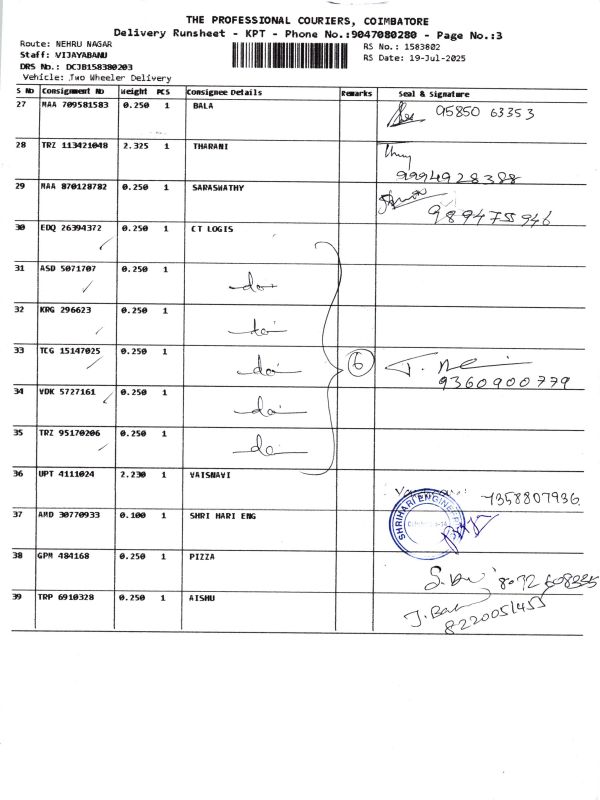 THE PROFESSIONAL COURIERS, COIMBATORE
Delivery Runsheet - KPT - Phone No.:9047080280 - Page No.:3
Route: NEHRU NAGAR
RS No.: 1583802
Staff: VIJAYABANU
RS Date: 19-Jul-2025
DRS No.: DCJB158380203
Vehicle: Two Wheeler Delivery
S No Consignment No Weight PCS Consignee Details Remarks Seal & Signature
27 MAA 709581583 0.250 1 BALA 95850 63353
28 TRZ 113421048 2.325 1 THARANI 9994928388
29 MAA 870128782 0.250 1 SARASWATHY 989475946
30 EDQ 26394372 0.250 1 CT LOGIS
31 ASD 5071707 0.250 1 do
32 KRG 296623 0.250 1 do
33 TCG 15147025 0.250 1 do 6 9360900779
34 VDK 5727161 0.250 1 do
35 TRZ 95170206 0.250 1 do
36 UPT 4111024 2.230 1 VAISNAVI 7358807936
37 AMD 30770933 0.100 1 SHRI HARI ENG SHRIHARI ENGINEER
38 GPM 484168 0.250 1 PIZZA
39 TRP 6910328 0.250 1 AISHU 8220051455